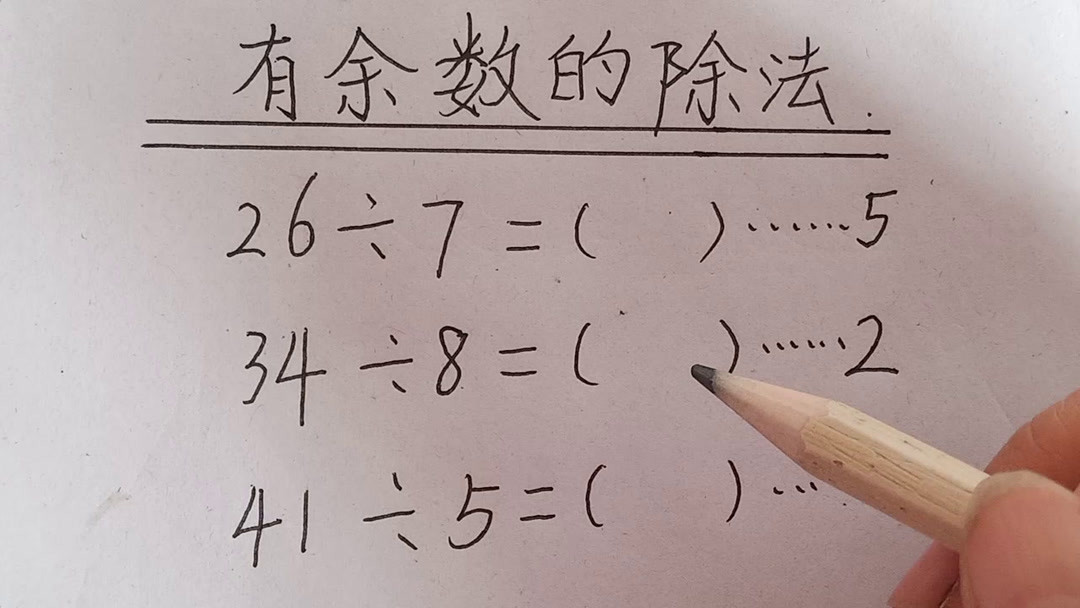 有余数的除法.
26÷7=(  )……5
34÷8=(  )……2
41÷5=(  )…